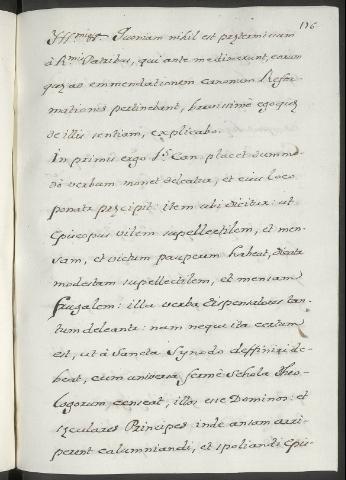 116
Ill.mi Quoniam nihil est prętermissum
à R.mis Patribus, qui ante me dixerunt, eorum
quę ad emmendationem canonum Refor
mationis pertinebant, brevissime ego quę
de illis sentiam, explicabo.
In primis ergo p.s Can. placet dummo-
do verbum monet deleatur, et eius loco
ponatur pręcipit: item ubi dicitur: ut
Episcopus vilem supellectilem, et men-
sam, et victum pauperum habeat, dicatur
modestam supellectilem, et mensam
frugalem: illa verba dispensatores tan-
tum deleantur: nam neque ita certum
est, ut à Sancta Synodo deffiniri de-
beat, cum universa ferme Schola Theo-
logorum censeat, illos esse Dominos: et
sęculares Principes inde ansam arri-
perent calumniandi, et spoliandi Epis-